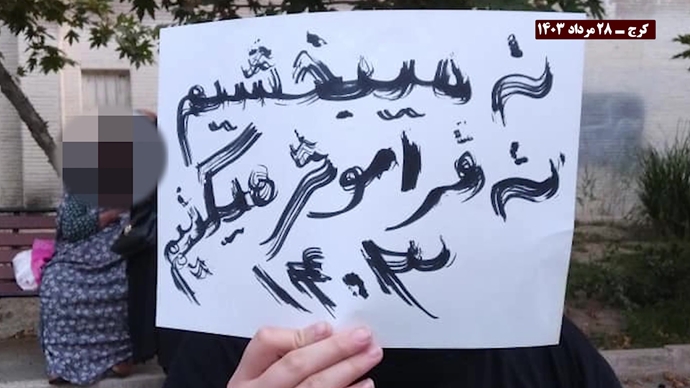 کرج – ۲۸ مرداد ۱۴۰۳
نه میبخشیم
نه فراموش میکنیم
۱۴۰۳